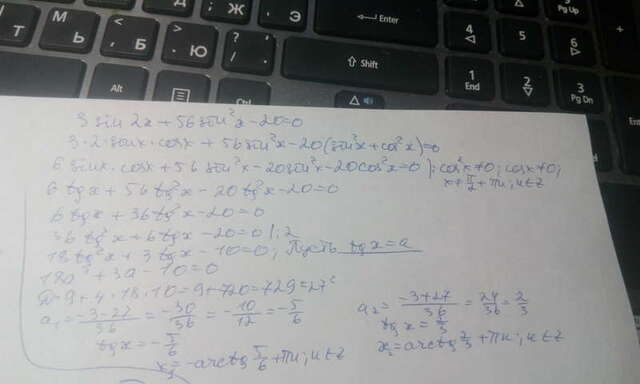 Т
М
Ь
Б
Ж
Ю
Э
? /
Enter
Shift
Alt
Ctrl
4
5
6
1 End
2
3 Pg Dn
9 Pg Up
+
3 sin 2x + 56 sin²x - 20 = 0
3·2·sinx·cosx + 56 sin²x - 20(sin²x + cos²x) = 0
6 sinx·cosx + 56 sin²x - 20 sin²x - 20 cos²x = 0 |: cos²x ≠ 0; cosx ≠ 0;
x ≠ π/2 + πn; n∈Z
6 tgx + 56 tg²x - 20 tg²x - 20 = 0
6 tgx + 36 tg²x - 20 = 0
36 tg²x + 6 tgx - 20 = 0 |: 2
18 tg²x + 3 tgx - 10 = 0; Пусть tgx = a
18a² + 3a - 10 = 0
D = 9 + 4·18·10 = 9 + 720 = 729 = 27²
a₁ = (-3-27)/36 = -30/36 = -10/12 = -5/6
tgx = -5/6
x₁ = -arctg 5/6 + πn; n∈Z
a₂ = (-3+27)/36 = 24/36 = 2/3
tgx = 2/3
x₂ = arctg 2/3 + πn; n∈Z